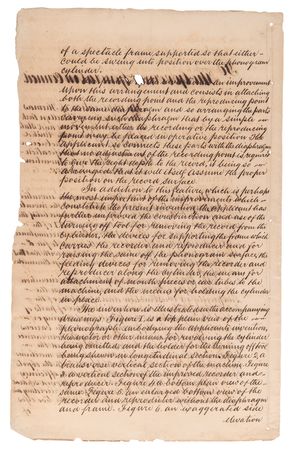 of a spectacle frame, supported so that either
could be swung into position over the phonogram
cylinder.
is an improvement
upon this arrangement and consists in attaching
both the recording point and the reproducing point
to the same diaphragm and so arranging the parts
carrying such diaphragm that by a simple
movement either the recording or the reproducing
point may be placed in operative position. The
applicant so connects these parts with the diaphragm
that no adjustment of the recording point is required
to give the right depth to the record, it being so
arranged that it will itself assume the proper
position on the record surface.
In addition to this feature, which is perhaps
the most important of the improvements which
constitute the present invention, the applicant has
further improved the construction and use of the
turning off tool for removing the record from the
cylinder, the devices for supporting the frame which
carries the recorder and reproducer and for
raising the same off the phonogram surface, the
feeding devices for moving the recorder and
reproducer along the cylinder, the means for
attachment of mouth pieces or ear tubes to the
machine, and the means for holding the cylinder
in place.
The invention is illustrated in the accompanying
drawings. Figure 1, is a top plan view of the
phonograph embodying the applicants invention,
the motor or other means for revolving the cylinder
being omitted and the holder for the turning off tool
being shown in longitudinal section; Figure 2, a
transverse vertical section of the machine; Figure
3, a vertical section of the improved recorder and
reproducer; Figure 4, a bottom plan view of the
same; Figure 5, an enlarged bottom view of the
recorder and reproducer without the diaphragm
and frame; Figure 6, an exaggerated side
elevation